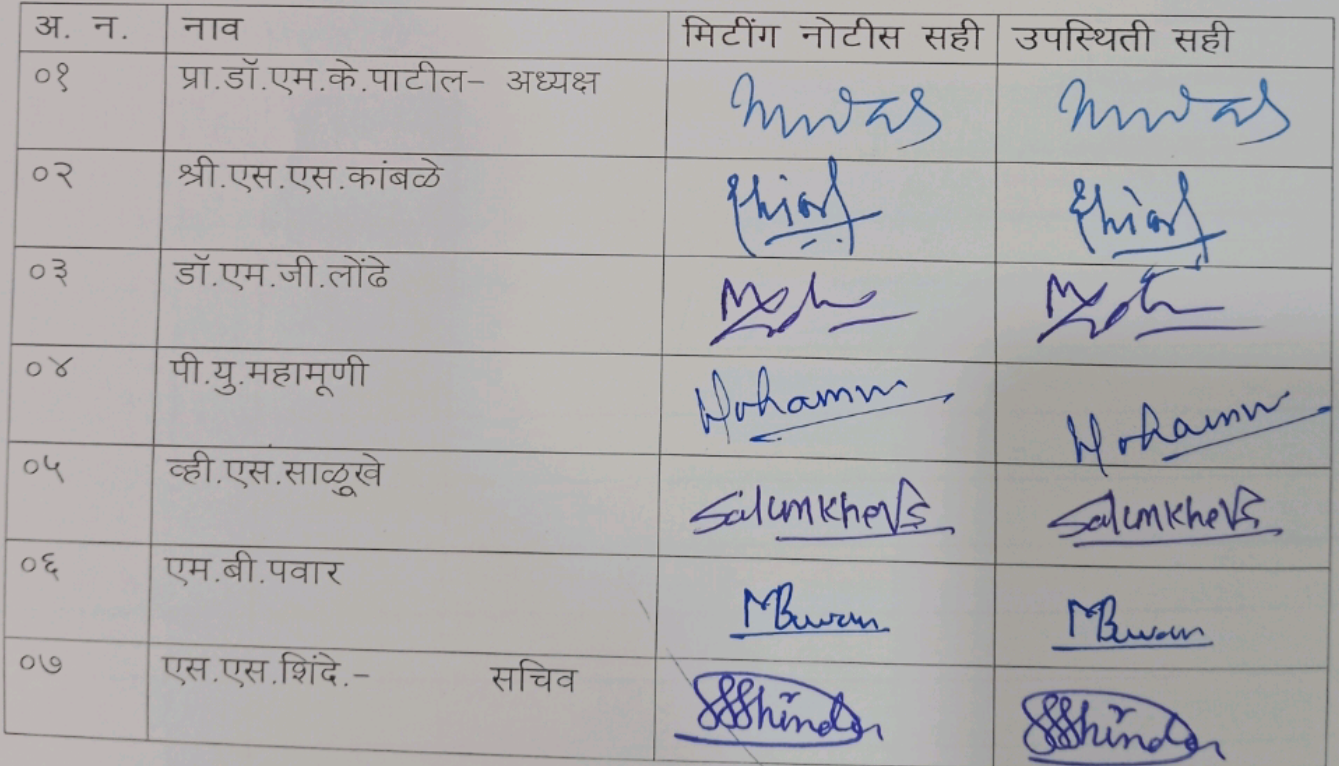 अ. न. नाव मिटींग नोटीस सही उपस्थिती सही
०१ प्रा.डॉ.एम.के.पाटील- अध्यक्ष
०२ श्री.एस.एस.कांबळे
०३ डॉ.एम.जी.लोंढे
०४ पी.यु.महामूणी
०५ व्ही.एस.साळुखे SalunkheVS SalunkheVS
०६ एम.बी.पवार
०७ एस.एस.शिंदे.- सचिव SSShinde SSShinde